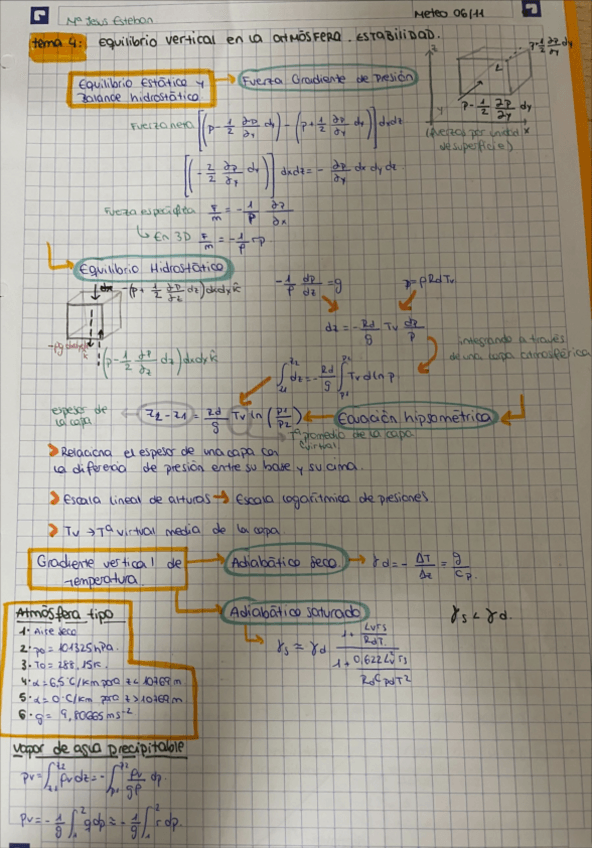 Mª Jesús Esteban
Meteo 06/11
tema 4: Equilibrio vertical en la atmósfera. Estabilidad.
Equilibrio Estático y Balance hidrostático → Fuerza Gradiente de Presión
p+1/2 ∂p/∂y dy
z
p-1/2 ∂p/∂y dy
y
x
(fuerzas por unidad de superficie)
Fuerza neta [(p-1/2 ∂p/∂y dy)-(p+1/2 ∂p/∂y dy)] dxdz
[(-2/2 ∂p/∂y dy)] dxdz = -∂p/∂y dx dy dz
Fuerza específica F/m = -1/ρ ∂p/∂x
↳ En 3D F/m = -1/ρ ∇p
Equilibrio Hidrostático
-1/ρ dp/dz = g
p=ρRdTv
-(p+1/2 ∂p/∂z dz)dxdy k̂
dz = -Rd/g Tv dp/p
(p-1/2 ∂p/∂z dz)dxdy k̂
integrando a través de una capa atmosférica
∫z1^z2 dz = -Rd/g ∫p1^p2 Tv d ln p
espesor de la capa ← z2-z1 = Rd/g Tv ln(p1/p2) ← Ecuación hipsométrica
Tª promedio de la capa
(virtual)
> Relaciona el espesor de una capa con
la diferencia de presión entre su base y su cima.
> Escala lineal de alturas → Escala logarítmica de presiones
> Tv → Tª virtual media de la capa
Gradiente vertical de temperatura. → Adiabático seco → γd = -ΔT/Δz = g/Cp.
Adiabático saturado
γs < γd.
γs ≈ γd (1+ Lvrs/RdT)/(1+ 0,622Lv²rs/RdCpdT²)
Atmósfera tipo
1· Aire seco
2· p0 = 101325hPa.
3· T0 = 288,15K
4· α = 6,5°C/km para z<10769 m
5· α = 0°C/km para z>10769 m
6· g = 9,80665 ms⁻²
vapor de agua precipitable
pv = ∫z1^z2 ρv dz = -∫p1^p2 ρv/gρ dp.
pv = -1/g ∫1^2 q dp ≈ -1/g ∫1^2 r dp.